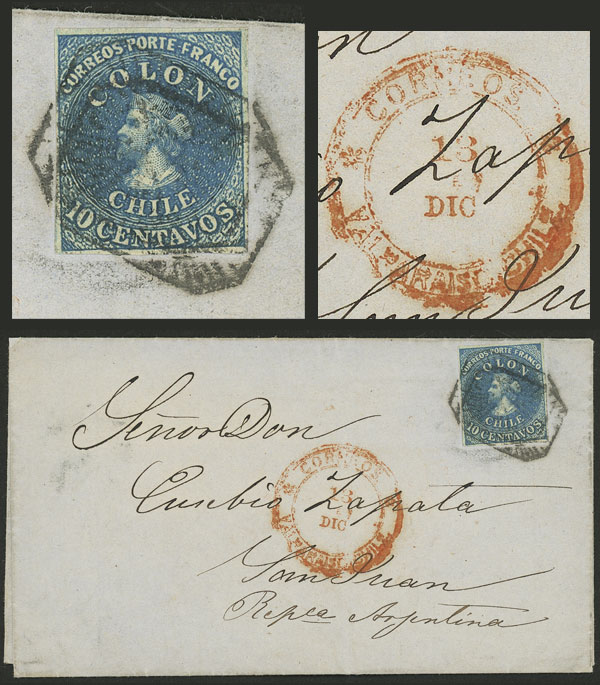 CORREOS PORTE FRANCO
COLON
CHILE
10 CENTAVOS
CORREOS
13
DIC
VALPARAISO CHILE
Zap
Juan
CORREOS PORTE FRANCO
COLON
CHILE
10 CENTAVOS
Señor Don
Eusebio Zapata
San Juan
Repca Argentina
CORREOS
13
DIC
VALPARAISO CHILE